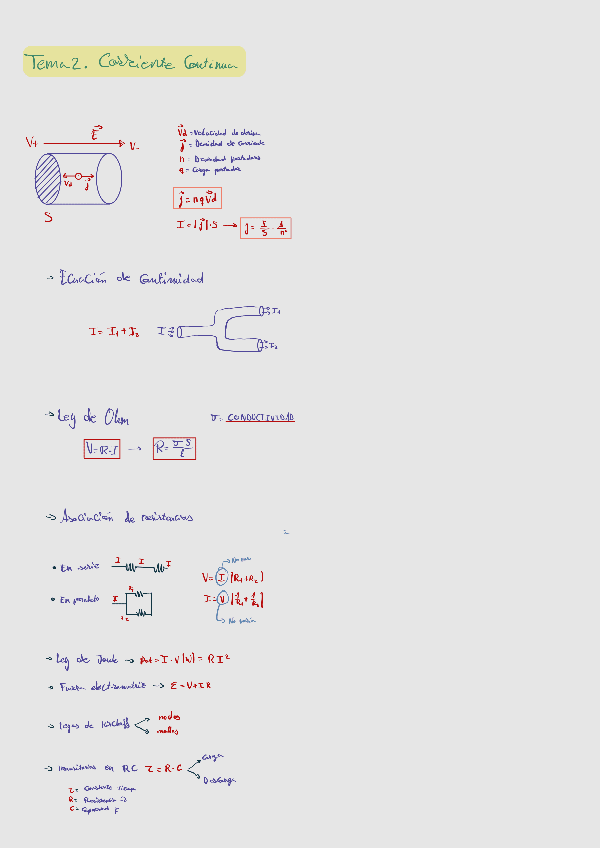 Tema 2. Corriente Continua
E⃗
V+ V-
Vd j⃗
S
V⃗d = Velocidad de deriva
j⃗ = Densidad de corriente
n = Densidad portadores
q = Carga portador
j⃗ = nqV⃗d
I = |j⃗|·S → j =
→ Ecuación de continuidad
I = I₁ + I₂ I I₁
I₂
→ Ley de Ohm σ = CONDUCTIVIDAD
V = R·I → R = σS/l
→ Asociación de resistencias
• En serie I I I V = I (R₁ + R₂)
No varía
• En paralelo I R₁ R₂ I = V (1/R₁ + 1/R₂)
No varía
→ Ley de Joule → = I·V |W| = RI²
→ Fuerza electromotriz → ε = V + IR
→ Leyes de Kirchoff nodos
mallas
→ Transitorios en RC τ = R·C Carga
Descarga
τ = Constante tiempo
R = Resistencia Ω
C = Capacidad F